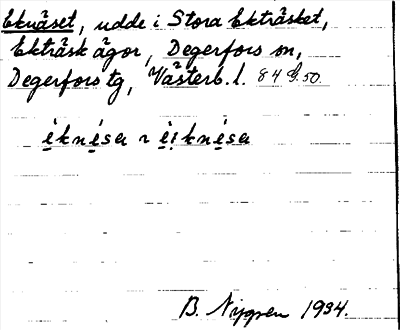 Eknäset, udde i Stora Ekträsket,
Ekträsk ägor, Degerfors sn,
Degerfors tg, Västerb. l. 84 S. 50.
èknésa ~ èiknésa
B. Nygren 1934.